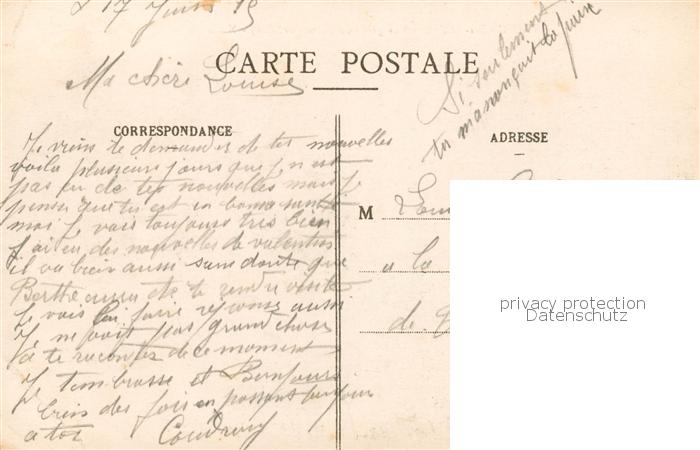 17 Juin 15
CARTE POSTALE
Ma chère Louise
Si seulement
tu m'anonçait la
CORRESPONDANCE
ADRESSE
Je viens te demander de tes nouvelles
voila plusieurs jours que j n est
pas eu de tes nouvelles mais j
pense que tu est en bonne santé
moi j vais toujours tres bien
j ai eu des nouvelles de valentin
il va bien aussi sans doute que
Berthe aura de te rendre visite
Je vais faire réponse aussi
Je ne voit pas grand chose
a te raconter de ce moment
Je t'embrasse et Bonjours
bien des fois en passant toujour
a toi
M
a la
de
privacy protection
Datenschutz